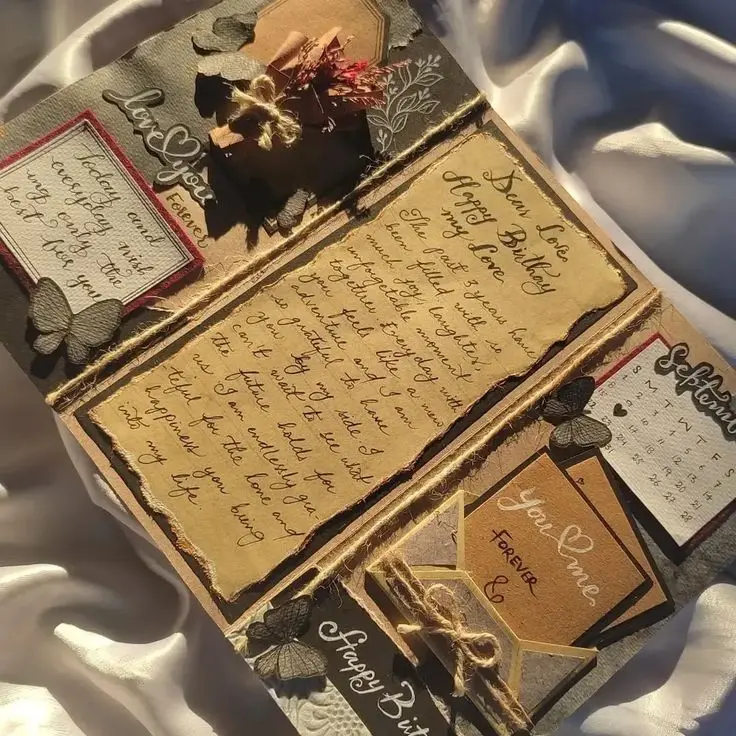 love you
Forever
Today and
everyday wish
ing only the
best for you
Dear Love
Happy Birthday
my Love
The past 3 years have
been filled with so
much joy, laughter,
unforgetable moment
together Everyday with
you feels like a new
adventure and I am
so grateful to have
you by my side I
can't wait to see what
the future holds for
us I am endlessly gra
teful for the love and
happiness you bring
into my life.
Septem
S M T W T F S
1 2 3 4 5 6 7
You me
FOREVER
&
Happy Birt